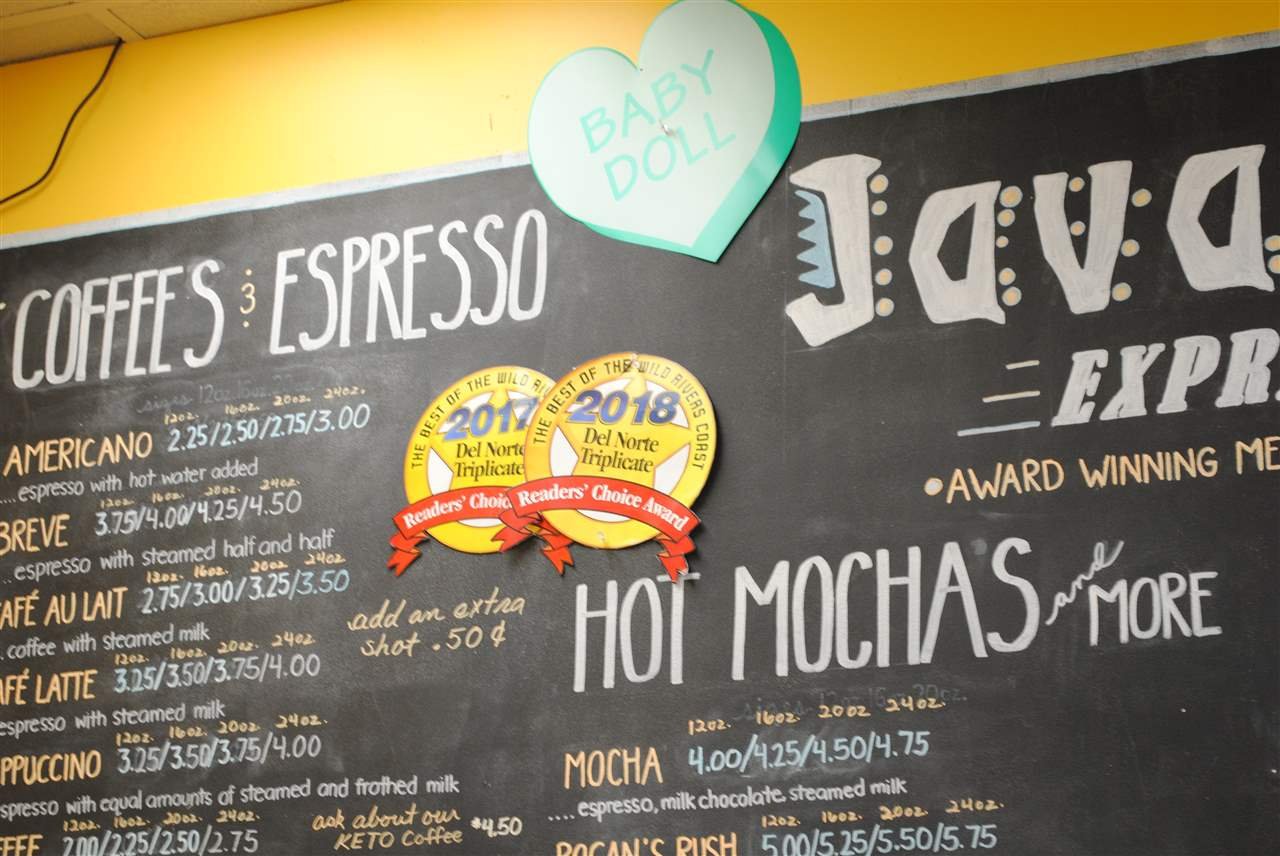 BABY
DOLL
COFFEES & ESPRESSO
sizes 12oz.
12oz. 16oz. 20oz. 24oz.
AMERICANO 2.25/2.50/2.75/3.00
....espresso with hot water added
12oz. 16oz. 20oz. 24oz.
BREVE 3.75/4.00/4.25/4.50
..espresso with steamed half and half
12oz. 16oz. 20oz 24oz
CAFÉ AU LAIT 2.75/3.00/3.25/3.50
.coffee with steamed milk
12oz. 16oz. 20oz. 24oz.
AFÉ LATTE 3.25/3.50/3.75/4.00
espresso with steamed milk
12oz. 16oz. 20oz. 24oz.
PPUCCINO 3.25/3.50/3.75/4.00
spresso with equal amounts of steamed and frothed milk
12oz. 16oz. 20oz. 24oz.
FFEE 2.00/2.25/2.50/2.75
add an extra
shot .50¢
ask about our
KETO Coffee $4.50
THE BEST OF THE WILD RIV
2017
Del Norte
Triplicate
Readers' Choic
THE BEST OF THE WILD RIVERS COAST
2018
Del Norte
Triplicate
Readers' Choice Award
Java
EXPR
•AWARD WINNING ME
HOT MOCHAS and MORE
sizes 12oz 16oz 20oz.
12oz. 16oz. 20oz 24oz.
MOCHA 4.00/4.25/4.50/4.75
....espresso, milk chocolate, steamed milk
12oz. 16oz. 20oz. 24oz.
ROGAN'S RUSH 5.00/5.25/5.50/5.75